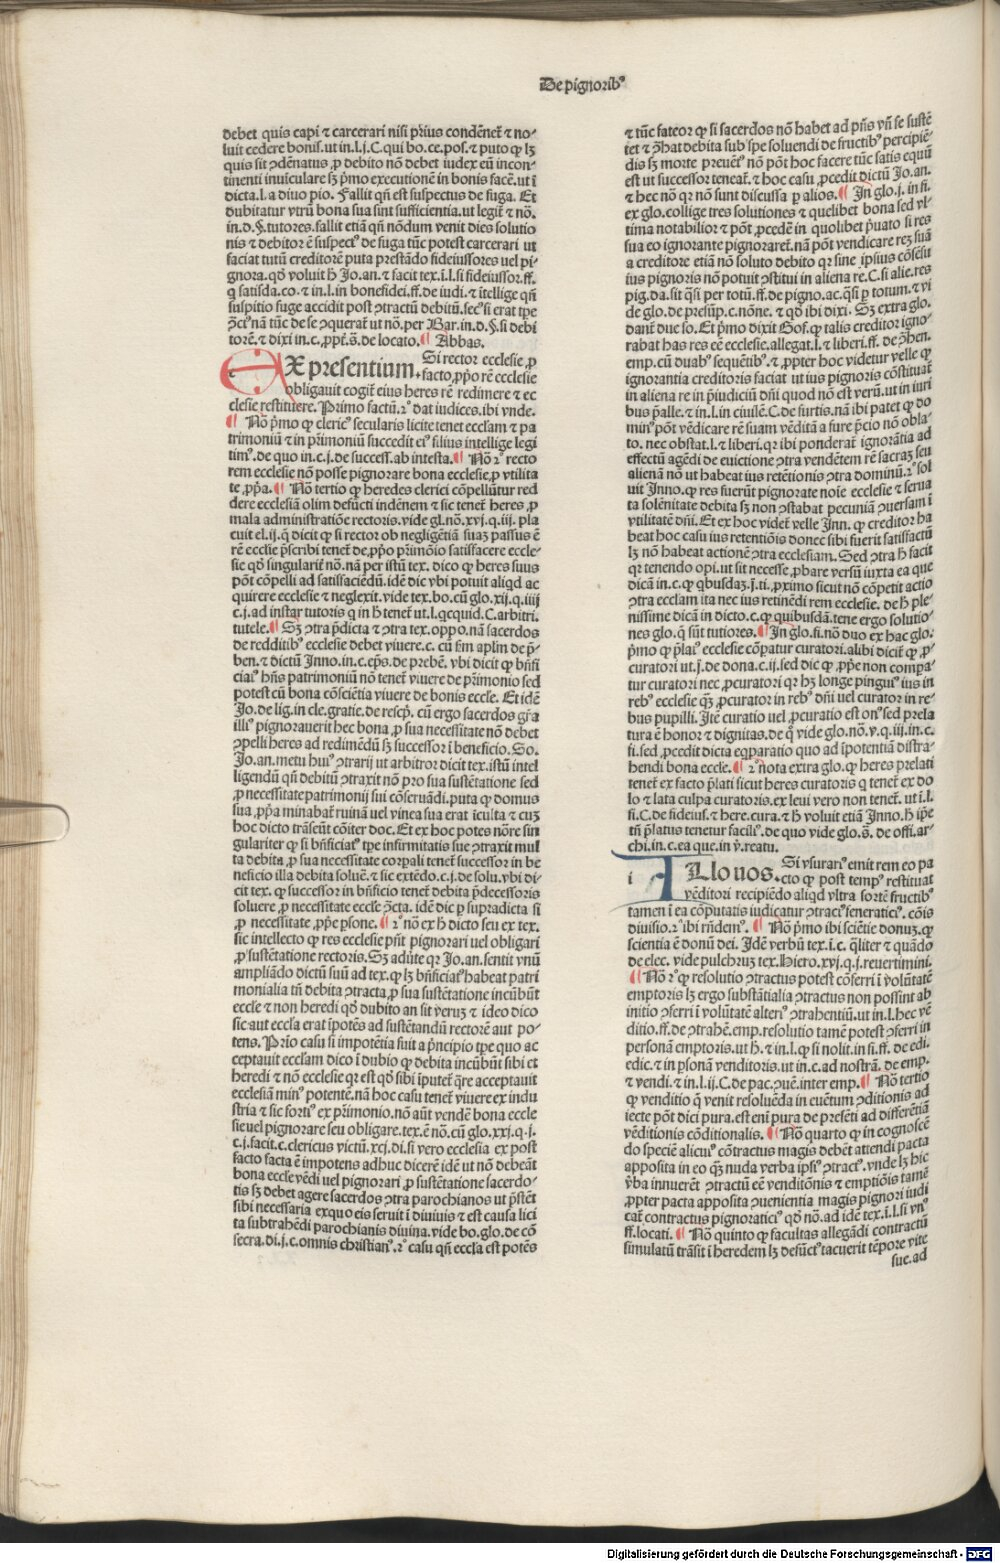 De pignoribꝰ
debet quis capi ⁊ carcerari nisi prius condẽnet̃ ⁊ no-
luit cedere bonis. ut in.l.j.C.qui bo.ce.pos. ⁊ puto ꝙ lꝫ
quis sit ꝯdẽnatus ꝓ debito nõ debet iudex eũ incon-
tinenti inuiculare sꝫ p̃mo executionẽ in bonis facẽ. ut ĩ
dicta.l.a diuo pio. Fallit qñ est suspectus de fuga. Et
dubitatur vtrũ bona sua sint sufficientia. ut legit̃ ⁊ nõ.
in.d.§.tutores. fallit etiã qñ nõdum venit dies solutio
nis ⁊ debitor ẽ suspectꝰ de fuga tũc potest carcerari ut
faciat tutũ creditorẽ puta prestãdo fideiussores uel pi-
gnora. qđ voluit h̃ Jo.an. ⁊ facit tex.ĩ.l.si fideiussor.ff.
q satisda.co. ⁊ in.l.in bonefidei.ff.de iudi. ⁊ ĩtellige qñ
suspitio fuge accidit post ꝯtractũ debitũ. secꝰ si erat tp̃e
ꝯc̃ꝰ nã tũc de se ꝯquerat̃ ut nõ.per Bar.in.d.§.si debi
torẽ. ⁊ dixi in.c.ꝓpt̃.s̃.de locato. ¶ Abbas.
EX presentium. Si rector ecclesie ꝓ
facto ꝓp̃o rẽ ecclesie
obligauit cogit̃ eius heres rẽ redimere ⁊ ec
clesie restituere. Primo factũ.2ꝰ dat iudices. ibi vnde.
¶ Nõ p̃mo ꝙ clericꝰ secularis licite tenet ecclam ⁊ pa
trimoniũ ⁊ in p̃rimoniũ succedit eiꝰ filius intellige legi
timꝰ. de quo in.c.j.de success.ab intesta. ¶ Nõ 2ꝰ recto
rem ecclesie nõ posse pignorare bona ecclesie ꝓ vtilita
te ꝓp̃a. ¶ Nõ tertio ꝙ heredes clerici cõpellũtur red
dere ecclesiã olim defũcti indẽnem ⁊ sic tenet̃ heres ꝓ
mala administratiõe rectoris. vide gl.nõ.xvj.q.iij. pla
cuit el.ij. q̃ dicit ꝙ si rector ob negligẽtiã suaꝫ passus ẽ
rẽ eccłie p̃scribi tenet̃ de ꝓp̃o p̃rimõio satisfacere eccle-
sie qđ singularẽ nõ. nã per istũ tex. dico ꝙ heres suus
põt cõpelli ad satisfaciẽdũ. idẽ dic vbi potuit aliqđ ac
quirere ecclesie ⁊ neglexit. vide tex.bo.cũ glo.xij.q.iiij
c.j.ad instar tutoris q in h̃ tenet̃ ut.l.qcquid.C.arbitri.
tutele. ¶ Sꝫ ꝯtra p̃dicta ⁊ ꝯtra tex.oppo.nã sacerdos
de redditibꝰ ecclesie debet viuere.c. cũ ẽm aplm de p̃-
ben. ⁊ dictũ Inno.in.c.ep̃s.de prebẽ. vbi dicit ꝙ bñfi
ciaꝰ hñs patrimoniũ nõ tenet̃ viuere de p̃rimonio sed
potest cũ bona cõsciẽtia viuere de bonis eccłe. Et idẽ
Jo.de lig.in cle.gratie.de rescp̃. cũ ergo sacerdos gr̃a
illiꝰ pignorauerit hec bona ꝓ sua necessitate nõ debet
ꝯpelli heres ad redimẽdũ sꝫ successor ĩ beneficio. So.
Jo.an.metu huiꝰ ꝯtrarij ut arbitror dicit tex.istũ intel
ligendũ qñ debitũ ꝯtraxit nõ pro sua sustẽtatione sed
ꝓ necessitate patrimonij sui cõseruãdi. puta ꝙ domus
sua ꝓp̃a minabat̃ ruinã uel vinea sua erat ĩculta ⁊ cuꝫ
hoc dicto trãseũt cõiter doc. Et ex hoc potes nõre sin
gulariter ꝙ si bñficiatꝰ tp̃e infirmitatis sue ꝯtraxit mul
ta debita ꝓ sua necessitate corpali tenet̃ successor in be
neficio illa debita soluẽ. ⁊ sic extẽdo.c.j.de solu. vbi di-
cit tex. ꝙ successor in bñficio tenet̃ debita p̃decessoris
soluere ꝓ necessitate eccłe ꝯc̃ta. idẽ dic ꝑ supradicta si
ꝓ necessitate ꝓp̃e ꝑsone. ¶ 2ꝰ nõ ex h̃ dicto seu ex tex.
sic intellecto ꝙ res ecclesie pñt pignorari uel obligari
ꝓ sustẽtatione rectoris. Sꝫ aduer̃te qꝛ Jo.an.sentit vnũ
ampliãdo dictũ suũ ad tex. ꝙ lꝫ bñficiatꝰ habeat patri
monialia tñ debita ꝯtracta ꝓ sua sustẽtatione incũbũt
eccłe ⁊ non heredi qđ dubito an sit veruꝫ ⁊ ideo dico
sic aut eccła erat ĩpotẽs ad sustẽtandũ rectorẽ aut po-
tens. Prĩo casu si impotẽtia fuit a p̃ncipio tp̃e quo ac
ceptauit ecclam dico ĩ dubio ꝙ debita incũbũt sibi et
heredi ⁊ nõ ecclesie qꝛ est qđ sibi iputet q̃re acceptauit
ecclesiã minꝰ potentẽ. nã hoc casu tenet̃ viuere ex indu
stria ⁊ sic fortiꝰ ex p̃rimonio. nõ aũt vendẽ bona eccłe
sie uel pignorare seu obligare. tex.ẽ nõ.cũ glo.xxj.q.j.
c.j.facit.c.clericus victũ.xcj.di. si vero ecclesia ex post
facto facta ẽ impotens adhuc dicerẽ idẽ ut nõ debeãt
bona eccłe vẽdi uel pignorari ꝓ sustẽtatione sacerdo-
tis sꝫ debet agere sacerdos ꝯtra parochianos ut p̃stẽt
sibi necessaria exquo eis seruit ĩ diuinis ⁊ est causa lici
ta subtrahẽdi parochianis diuina. vide bo.glo.de cõ
secra.di.j.c.omnis christianꝰ. 2ꝰ casu qñ eccła est potẽs
⁊ tũc fateor ꝙ si sacerdos nõ habet ad p̃ñs vñ se sustẽ
tet ⁊ ꝯ̃hat debita sub spe soluendi de fructibꝰ percipiẽ-
dis sꝫ morte preuẽtꝰ nõ põt hoc facere tũc satis equũ
est ut successor teneat̃. ⁊ hoc casu ꝓcedit dictũ Jo.an.
⁊ hec nõ qꝛ nõ sunt discussa ꝑ alios. ¶ In glo.j. in fi.
ex glo. collige tres solutiones ⁊ quelibet bona sed vl-
tima notabilior ⁊ põt ꝓcedẽ in quolibet p̃uato si res
sua eo ignorante pignoraret̃. nã põt vendicare reꝫ suã
a creditore etiã nõ soluto debito qꝛ sine ipsius cõsẽsu
ius pignoris nõ potuit ꝯstitui in aliena re.C.si alie.res
pig.da.sit q̃si per totũ.ff.de pigno.ac.q̃si ꝑ totum. ⁊ vi
de glo.de presũp.c.nõne. ⁊ qđ ibi dixi. Sꝫ extra glo.
dant̃ due so. Et p̃mo dixit Gof. ꝙ talis creditor igno-
rabat has res eẽ ecclesie. allegat.l. ⁊ liberi.ff. de ꝯ̃hen.
emp.cũ duabꝰ sequẽtibꝰ. ⁊ ꝓpter hoc videtur velle ꝙ
ignorantia creditoris faciat ut ius pignoris cõstituat̃
in aliena re in p̃iudiciũ dñi quod nõ est verũ. ut in iuri
bus p̃alle. ⁊ in.l.in ciuilẽ.C.de furtis. nã ibi patet ꝙ do
minꝰ põt vẽdicare rẽ suam vẽditã a fure p̃cio nõ obla-
to. nec obstat.l. ⁊ liberi. qꝛ ibi ponderat̃ ignorãtia ad
effectũ agẽdi de euictione ꝯtra vendẽtem rẽ sacraꝫ seu
alienã nõ ut habeat ius retẽtionis ꝯtra dominũ. 2ꝰ sol
uit Inno. ꝙ res fuerũt pignorate noĩe ecclesie ⁊ serua
ta solẽnitate debita sꝫ non ꝯstabat pecuniã ꝯuersam ĩ
vtilitatẽ dñi. Et ex hoc videt̃ velle Inn. ꝙ creditor ha
beat hoc casu ius retentiõis donec sibi fuerit satisfactũ
lꝫ nõ habeat actionẽ ꝯtra ecclesiam. Sed ꝯtra h̃ facit
qꝛ tenendo opi. ut sit necesse ꝓbare versũ iuxta ea que
dicã in.c. ꝙ qbusdaꝫ.j.ti. ꝓximo sicut nõ cõpetit actio
ꝯtra ecclam ita nec ius retinẽdi rem ecclesie. de h̃ ple-
nissime dicã in dicto.c. ꝙ quibusdã. tene ergo solutio-
nes glo. q̃ sũt tutiores. ¶ In glo.fi.nõ duo ex hac glo.
p̃mo ꝙ p̃laꝰ ecclesie cõpatur curatori. alibi dicit̃ ꝙ ꝓ-
curatori ut.j.de dona.c.ij. sed dic ꝙ ꝓp̃e non compa-
tur curatori nec ꝓcuratori qꝛ hꝫ longe pinguiꝰ ius in
rebꝰ ecclesie q̃ꝫ ꝓcurator in rebꝰ dñi uel curator in re-
bus pupilli. Itẽ curatio uel ꝓcuratio est onꝰ sed prela
tura ẽ honor ⁊ dignitas. de q̃ vide glo.nõ.v.q.iij.in.c.
fi. sed ꝓcedit dicta eq̃paratio quo ad ĩpotentiã distra-
hendi bona eccłe. ¶ 2ꝰ nota extra glo. ꝙ heres prelati
tenet̃ ex facto p̃lati sicut heres curatoris q tenet̃ ex do
lo ⁊ lata culpa curatoris. ex leui vero non tenet̃. ut ĩ.l.
fi.C.de fideius. ⁊ here.cura. ⁊ h̃ voluit etiã Inno. h̃ ip̃e
tñ p̃latus tenetur faciliꝰ. de quo vide glo.s̃. de offi.ar-
chi.in.c.ea que.in ṽ.reatu.
ILlo uos. Si vsurariꝰ emit rem eo pa
cto ꝙ post tempꝰ restituat
vẽditori recipiẽdo aliqđ vltra sortẽ fructibꝰ
tamen ĩ ea cõputatis iudicatur ꝯtractꝰ feneraticiꝰ. cõis
diuisio. 2ꝰ ibi rñdemꝰ. ¶ Nõ p̃mo ibi sciẽtie donuꝫ. ꝙ
scientia ẽ donũ dei. Idẽ verbũ tex.ĩ.c.q̃liter ⁊ quãdo
de elec. vide pulchruꝫ tex.Hiero.xvj.q.j.reuertimini.
¶ Nõ 2ꝰ ꝙ resolutio ꝯtractus potest cõferri ĩ volũtatẽ
emptoris lꝫ ergo substãtialia ꝯtractus non possint ab
initio ꝯferri ĩ volũtatẽ alteriꝰ ꝯtrahentiũ. ut in.l.hec vẽ
ditio.ff.de ꝯtrahẽ.emp. resolutio tamẽ potest ꝯferri in
personã emptoris. ut h̃. ⁊ in.l. ꝙ si nolit.in fi.ff. de edi.
edic. ⁊ in ꝑsonã venditoris. ut in.c.ad nostrã. de emp.
⁊ vendi. ⁊ in.l.ij.C.de pac.ꝯuẽ.inter emp. ¶ Nõ tertio
ꝙ venditio q̃ venit resoluẽda in euẽtum ꝯditionis ad
iecte põt dici pura. est enĩ pura de presẽti ad differẽtiã
vẽditionis cõditionalis. ¶ Nõ quarto ꝙ in cognoscẽ
do speciẽ alicuiꝰ cõtractus magis debẽt attendi pacta
apposita in eo q̃ꝫ nuda verba ipsiꝰ ꝯtractꝰ. vnde lꝫ hic
ṽba innuerẽt ꝯtractũ eẽ venditõnis ⁊ emptiõis tamẽ
ꝓpter pacta apposita ꝯuenientia magis pignori iudi
cat̃ contractus pignoraticiꝰ qđ nõ. ad idẽ tex.ĩ.l.si vnꝰ
ff.locati. ¶ Nõ quinto ꝙ facultas allegãdi contractũ
simulatũ trãsit ĩ heredem lꝫ defũctꝰ tacuerit tẽpore vite
sue. ad